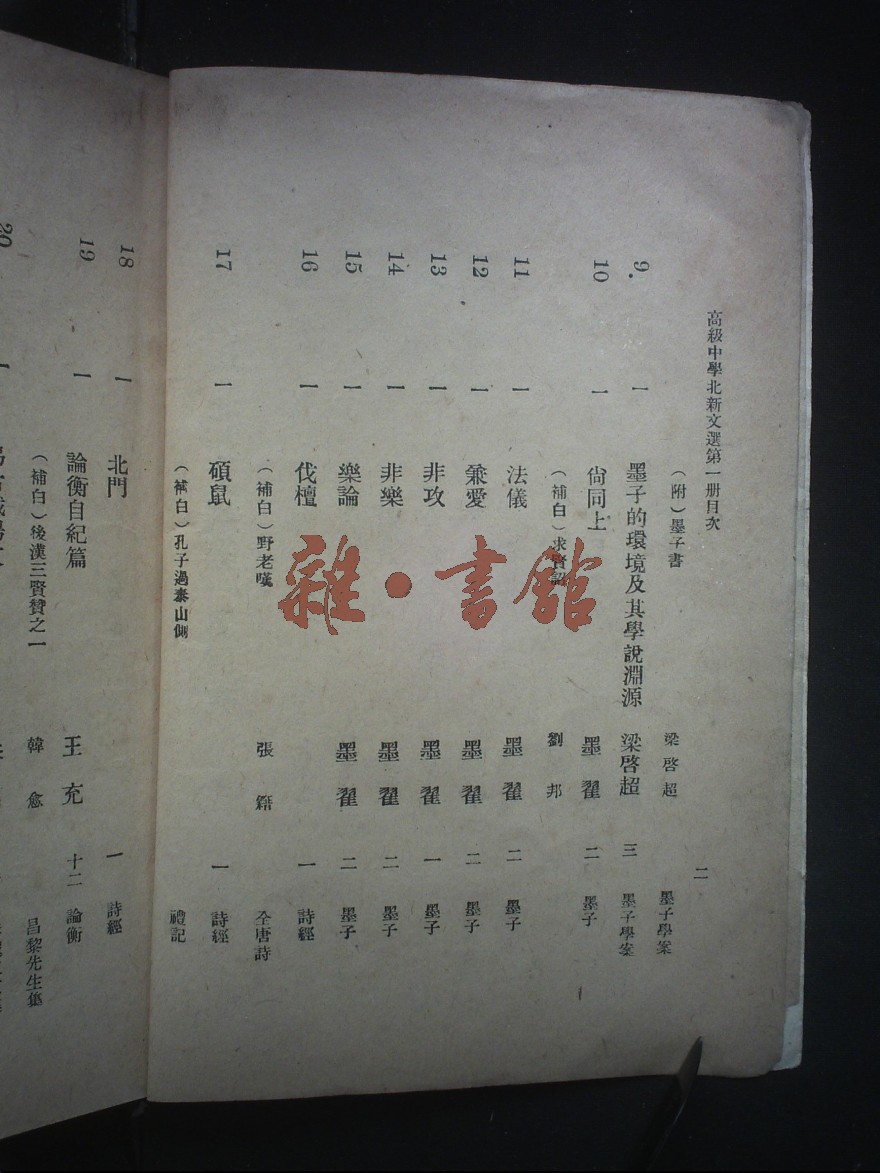 高級中學北新文選第一册目次
二
（附）墨子書 梁啓超 墨子學案
9. 一 墨子的環境及其學說淵源 梁啓超 三 墨子學案
10 一 尙同上 墨翟 二 墨子
（補白）求賢詔 劉邦
11 一 法儀 墨翟 二 墨子
12 一 兼愛 墨翟 二 墨子
13 一 非攻 墨翟 一 墨子
14 一 非樂 墨翟 二 墨子
15 一 樂論 墨翟 二 墨子
16 一 伐檀 一 詩經
（補白）野老嘆 張籍 全唐詩
17 一 碩鼠 一 詩經
（補白）孔子過泰山側 禮記
18 一 北門 一 詩經
19 一 論衡自紀篇 王充 十二 論衡
（補白）後漢三賢贊之一 韓愈 昌黎先生集
20 一
雜·書館